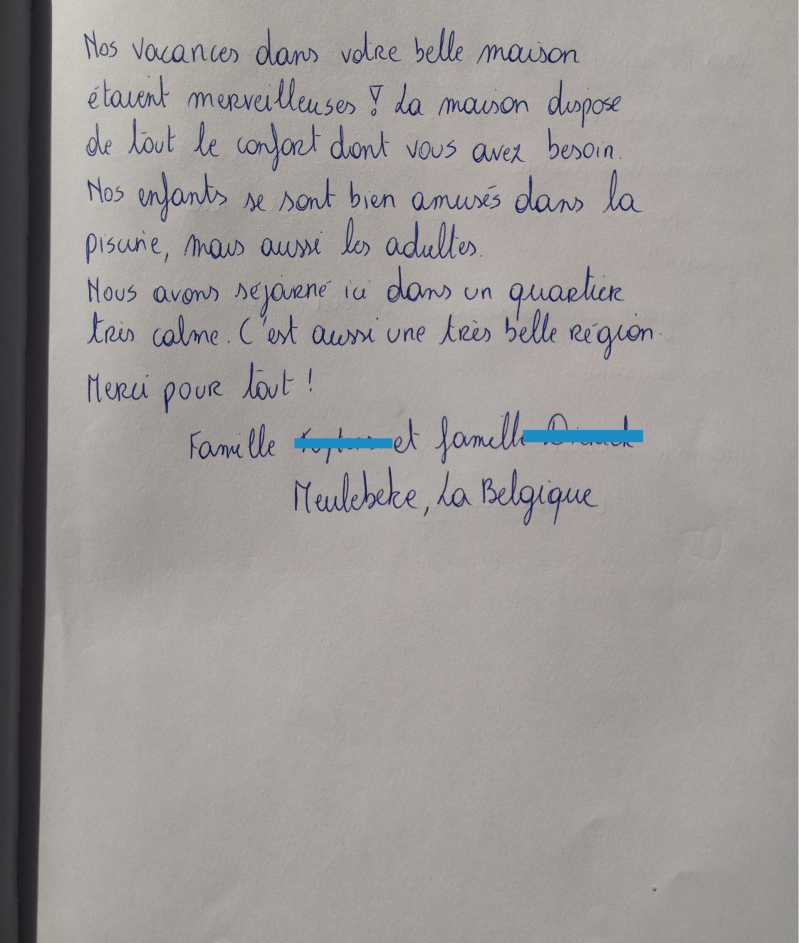 Nos vacances dans votre belle maison
étaient merveilleuses ! La maison dispose
de tout le confort dont vous avez besoin.
Nos enfants se sont bien amusés dans la
piscine, mais aussi les adultes.
Nous avons séjourné ici dans un quartier
très calme. C'est aussi une très belle région.
Merci pour tout !
Famille et famille
Meulebeke, La Belgique